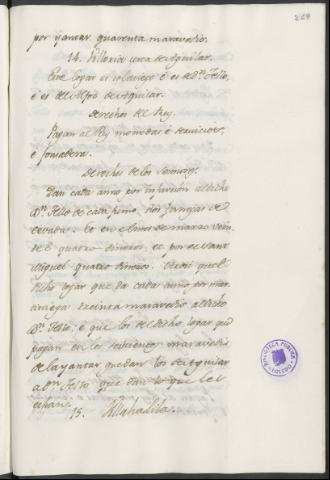 269
por yantar quarenta maravedis.
14. Villoria cerca de Aguilar.
Este logar es solariego è es de Dn. Tello,
è es del Alfoz de Aguilar.
Derechos del Rey.
Pagan al Rey monedas è servicios,
è fonsadera.
Derechos de los Señores.
Dan cada anno por infurción al dicho
Dn. Tello de cada fumo dos fanegas de
cevada. Et en el mes de marzo
quatro dineros, et por el Sant
Miguel quatro dineros. Otrosi que el
dicho logar que da cada anno por mar-
tiniega treinta maravedis al dicho
Dn. Tello, è que los del dicho logar que
pagan en los maravedis
de la yantar que dan los de Aguilar
a Dn. Tello que dan lo que les
echan.
15. Villabadila.
BIBLIOTECA PUBLICA